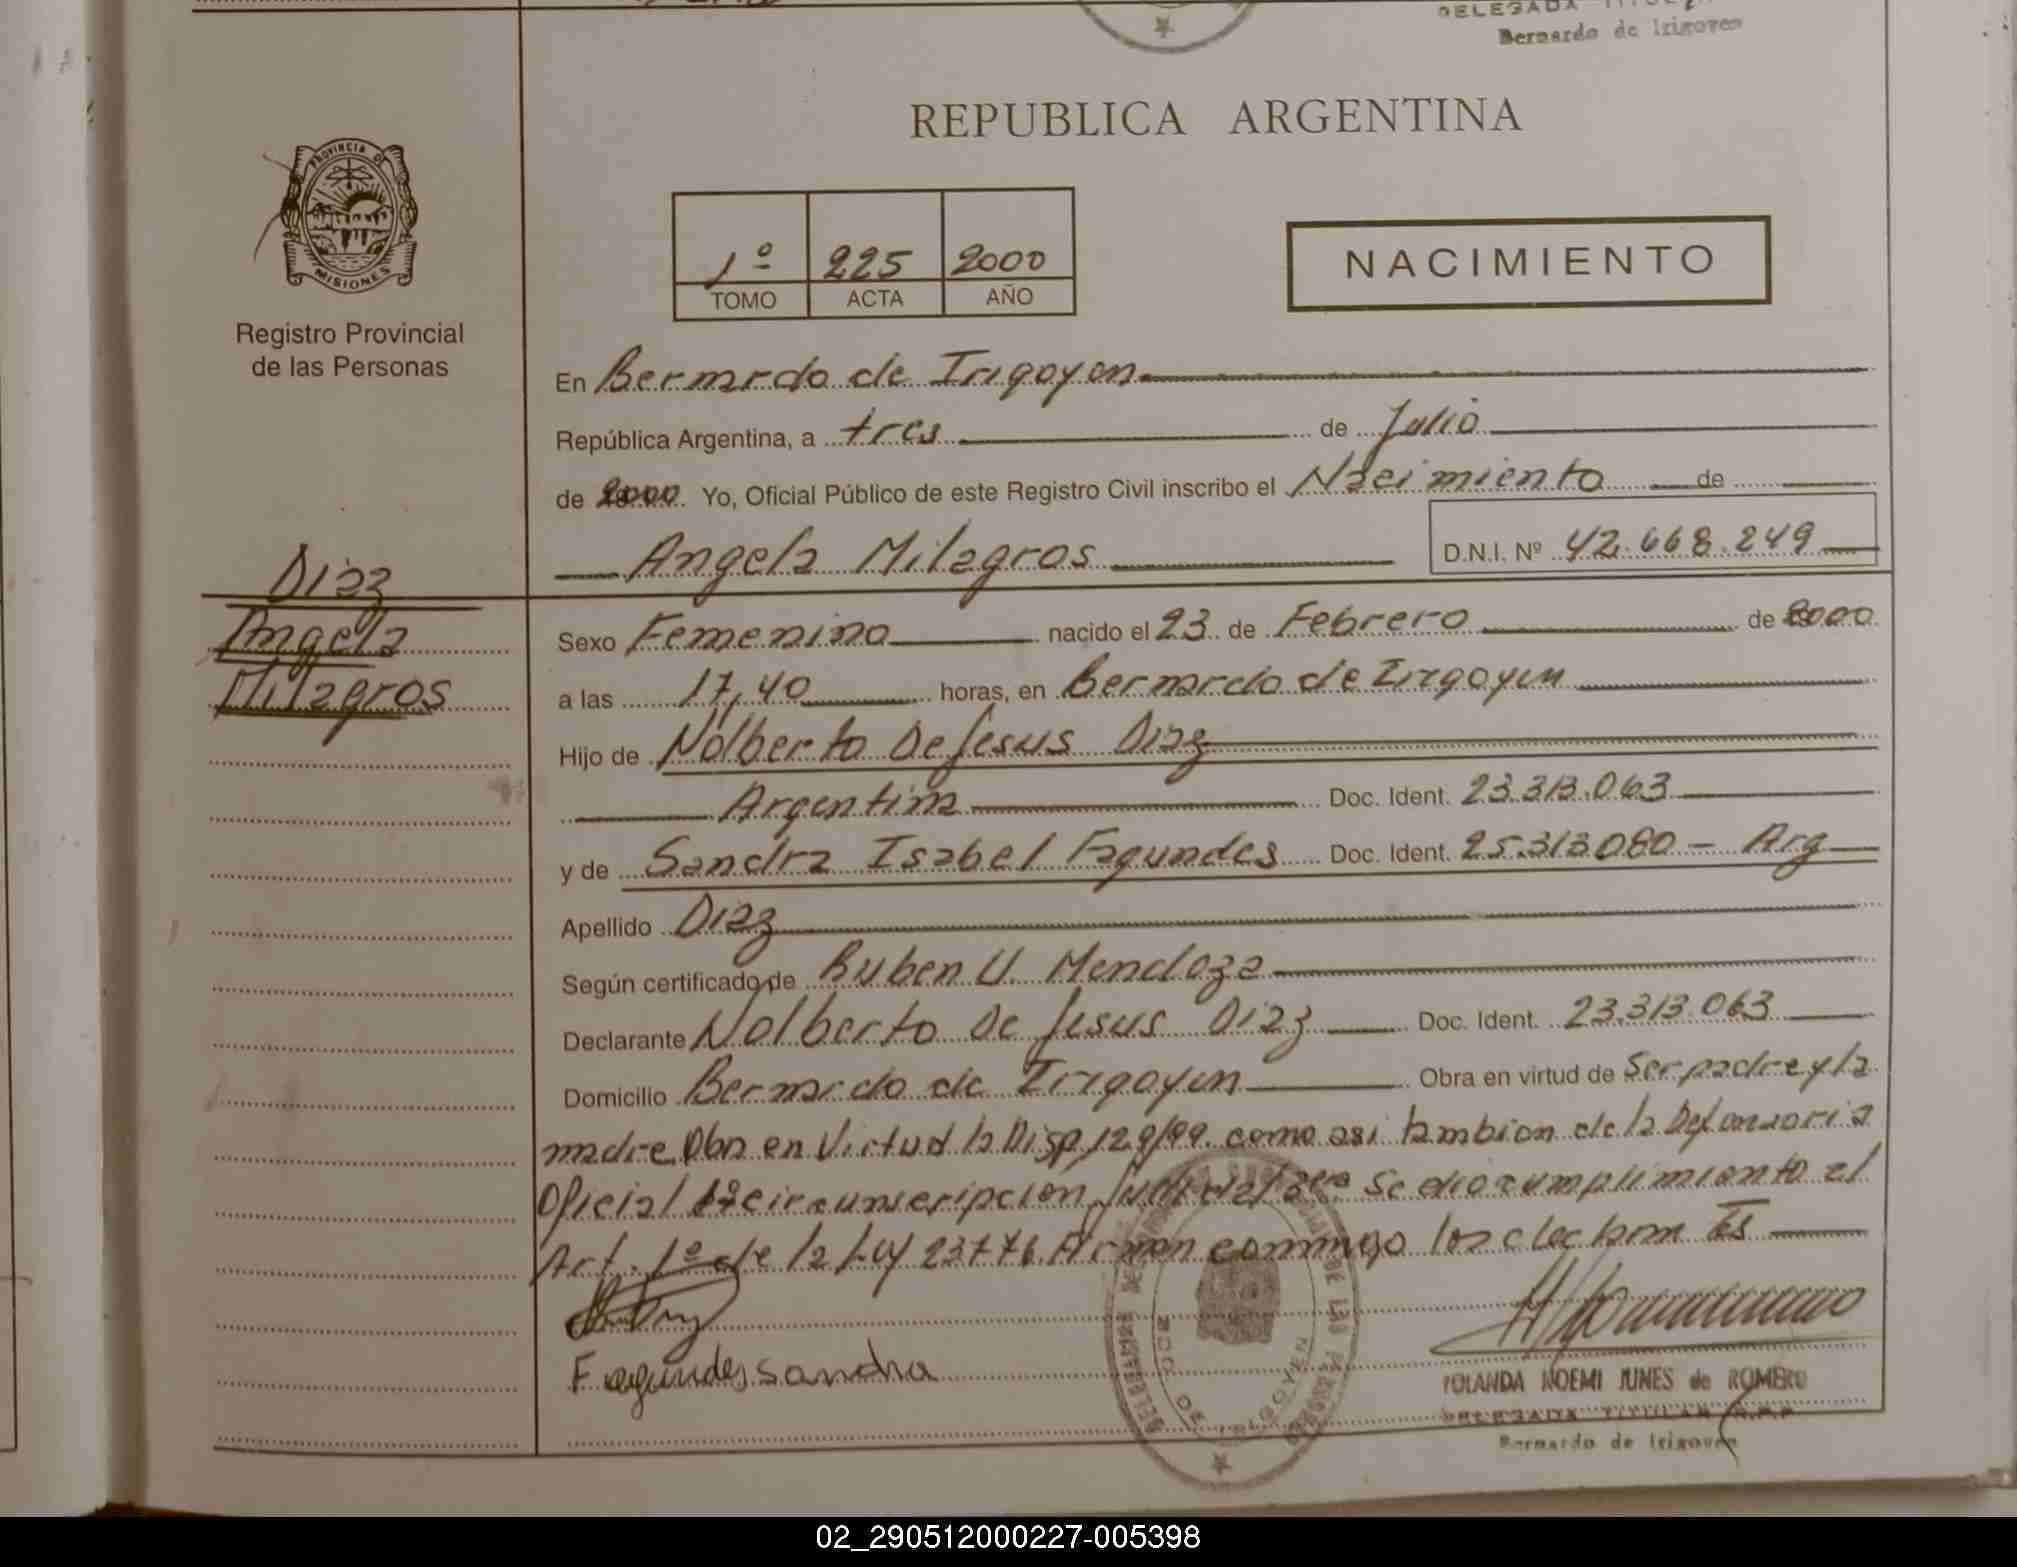 Bernardo de Irigoyen
REPUBLICA ARGENTINA
PROVINCIA DE
MISIONES
Registro Provincial
de las Personas
1º 225 2000
TOMO ACTA AÑO
NACIMIENTO
En Bernardo de Irigoyen
República Argentina, a tres de Julio
de 2000 Yo, Oficial Público de este Registro Civil inscribo el Nacimiento de
Angela Milagros D.N.I. Nº 42.668.249
Diaz
Angela
Milagros
Sexo Femenino nacido el 23 de Febrero de 2000
a las 17,40 horas, en Bernardo de Irigoyen
Hijo de Nolberto De Jesus Diaz
Argentina Doc. Ident. 23.313.063
y de Sandra Isabel Fagundes Doc. Ident. 25.313.080 - Arg
Apellido Diaz
Según certificado de Ruben U. Mendoza
Declarante Nolberto De Jesus Diaz Doc. Ident. 23.313.063
Domicilio Bernardo de Irigoyen Obra en virtud de Ser padre y la
madre Obra en Virtud la Disp, 129/99. como asi tambien de la Defensoria
Oficial circunscripcion Se dio cumplimiento el
Art. 1º de la Ley 23776. Firman conmigo los declarantes
Fagundes Sandra
YOLANDA NOEMI JUNES de ROMERO
DELEGADA TITULAR R.P.P.
Bernardo de Irigoyen
02_290512000227-005398